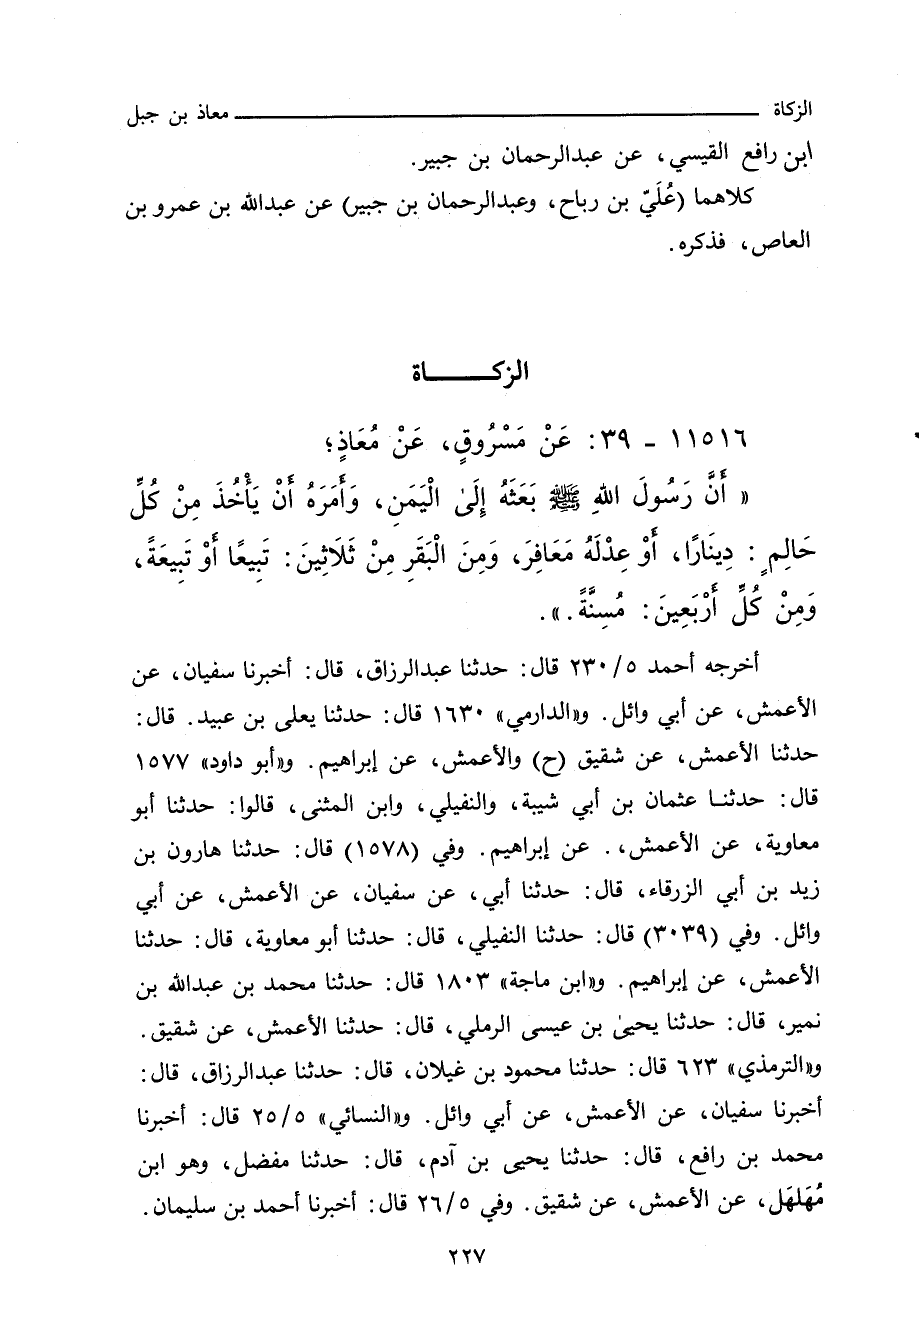 الزكاة ــــــــــــــــــــــــــــــــــــــــ معاذ بن جبل
ابن رافع القيسي، عن عبدالرحمان بن جبير.
كلاهما (عُلَيّ بن رباح، وعبدالرحمان بن جبير) عن عبدالله بن عمرو بن
العاص، فذكره.
الزكــــــاة
١١٥١٦ - ٣٩: عَنْ مَسْرُوقٍ، عَنْ مُعَاذٍ؛
« أَنَّ رَسُولَ اللهِ ﷺ بَعَثَهُ إِلَىٰ الْيَمَنِ، وَأَمَرَهُ أَنْ يَأْخُذَ مِنْ كُلِّ
حَالِمٍ: دِينَارًا، أَوْ عِدْلَهُ مَعَافِرَ، وَمِنَ الْبَقَرِ مِنْ ثَلَاثِينَ: تَبِيعًا أَوْ تَبِيعَةً،
وَمِنْ كُلِّ أَرْبَعِينَ: مُسِنَّةً.».
أخرجه أحمد ٢٣٠/٥ قال: حدثنا عبدالرزاق، قال: أخبرنا سفيان، عن
الأعمش، عن أبي وائل. و«الدارمي» ١٦٣٠ قال: حدثنا يعلى بن عبيد. قال:
حدثنا الأعمش، عن شقيق (ح) والأعمش، عن إبراهيم. و«أبو داود» ١٥٧٧
قال: حدثنا عثمان بن أبي شيبة، والنفيلي، وابن المثنى، قالوا: حدثنا أبو
معاوية، عن الأعمش،. عن إبراهيم. وفي (١٥٧٨) قال: حدثنا هارون بن
زيد بن أبي الزرقاء، قال: حدثنا أبي، عن سفيان، عن الأعمش، عن أبي
وائل. وفي (٣٠٣٩) قال: حدثنا النفيلي، قال: حدثنا أبو معاوية، قال: حدثنا
الأعمش، عن إبراهيم. و«ابن ماجة» ١٨٠٣ قال: حدثنا محمد بن عبدالله بن
نمير، قال: حدثنا يحيىٰ بن عيسى الرملي، قال: حدثنا الأعمش، عن شقيق.
و«الترمذي» ٦٢٣ قال: حدثنا محمود بن غيلان، قال: حدثنا عبدالرزاق، قال:
أخبرنا سفيان، عن الأعمش، عن أبي وائل. و«النسائي» ٢٥/٥ قال: أخبرنا
محمد بن رافع، قال: حدثنا يحيى بن آدم، قال: حدثنا مفضل، وهو ابن
مُهَلهَل، عن الأعمش، عن شقيق. وفي ٢٦/٥ قال: أخبرنا أحمد بن سليمان.
٢٢٧